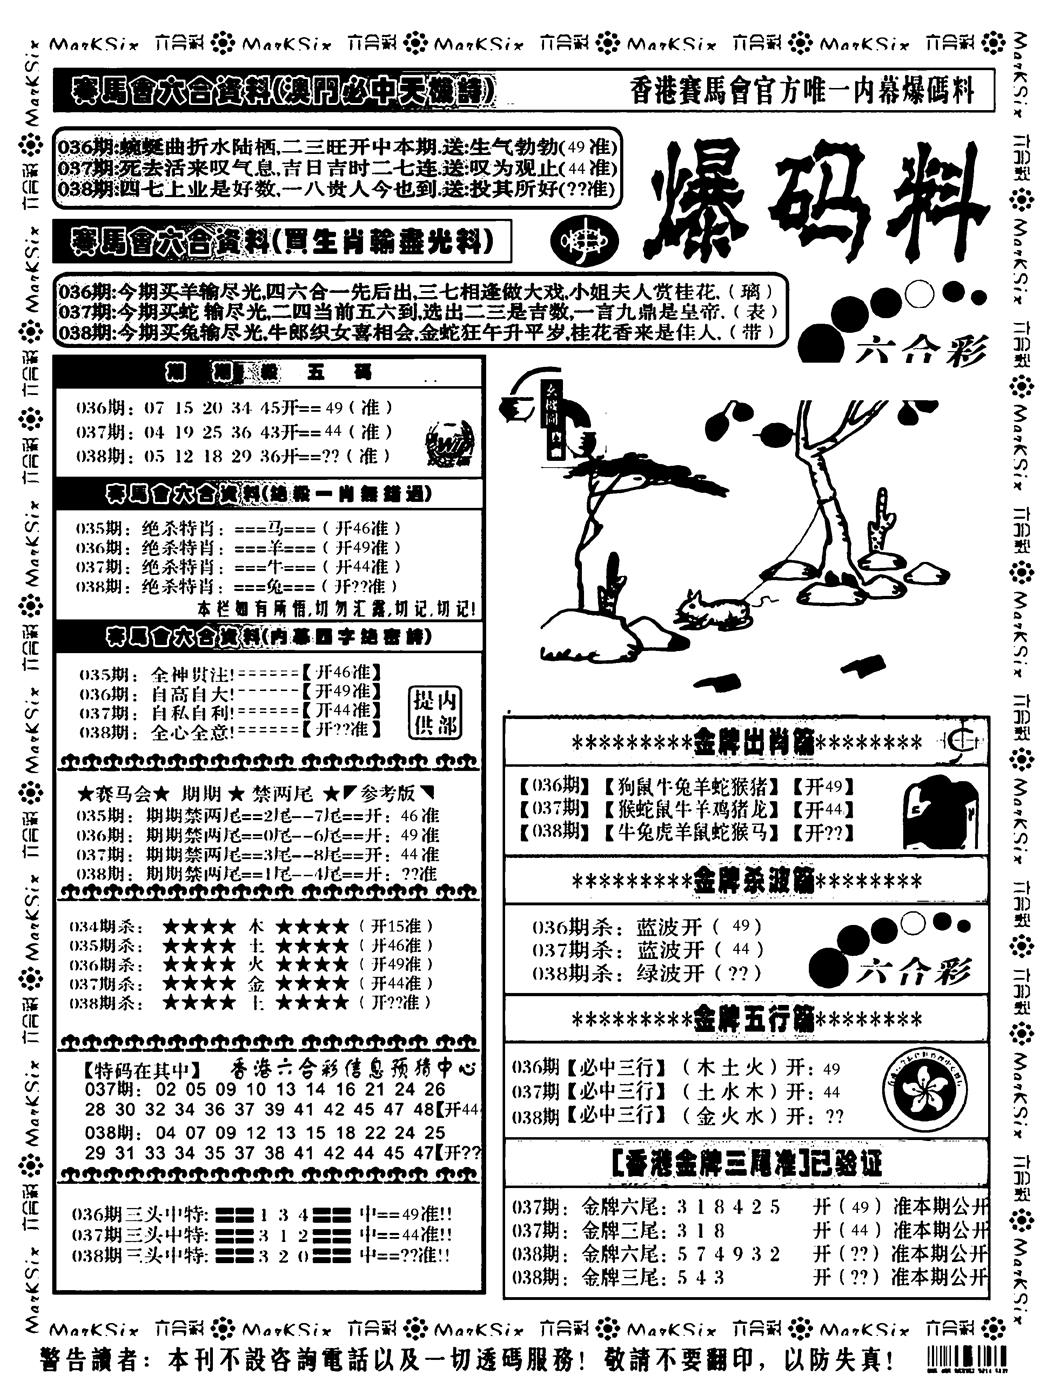 MarKSix 六合彩 MarKSix 六合彩 MarKSix 六合彩 MarKSix 六合彩 MarKSix 六合彩
賽馬會六合資料(澳門必中天機詩)
香港賽馬會官方唯一内幕爆碼料
036期:蜿蜒曲折水陆栖,二三旺开中本期,送:生气勃勃(49准)
037期:死去活来叹气息,吉日吉时二七连,送:叹为观止(44准)
038期:四七上业是好数,一八贵人今也到,送:投其所好(??准)
爆码料
賽馬會六合資料(買生肖輸盡光料)
036期:今期买羊输尽光,四六合一先后出,三七相逢做大戏,小姐夫人赏桂花.(璃)
037期:今期买蛇输尽光,二四当前五六到,选出二三是吉数,一言九鼎是皇帝.(表)
038期:今期买兔输尽光,牛郎织女喜相会,金蛇狂午升平岁,桂花香来是佳人.(带)
六合彩
期期殺五碼
036期: 07 15 20 34 45开==49(准)
037期: 04 19 25 36 43开==44(准)
038期: 05 12 18 29 36开==??(准)
賽馬會六合資料(绝殺一肖無錯過)
035期: 绝杀特肖: ===马===(开46准)
036期: 绝杀特肖: ===羊===(开49准)
037期: 绝杀特肖: ===牛===(开44准)
038期: 绝杀特肖: ===兔===(开??准)
本栏如有所悟,切勿汇露,切记,切记!
賽馬會六合資料(内幕四字绝密詩)
035期: 全神贯注!======【开46准】
036期: 自高自大!------【开49准】
037期: 自私自利!======【开44准】
038期: 全心全意!======【开??准】
内部提供
★赛马会★ 期期★禁两尾★◤参考版◥
035期: 期期禁两尾==2尾--7尾==开: 46准
036期: 期期禁两尾==0尾--6尾==开: 49准
037期: 期期禁两尾==3尾--8尾==开: 44准
038期: 期期禁两尾==1尾--4尾==开: ??准
034期杀: ★★★★ 木 ★★★★(开15准)
035期杀: ★★★★ 土 ★★★★(开46准)
036期杀: ★★★★ 火 ★★★★(开49准)
037期杀: ★★★★ 金 ★★★★(开44准)
038期杀: ★★★★ 土 ★★★★(开??准)
【特码在其中】 香港六合彩信息预猜中心
037期: 02 05 09 10 13 14 16 21 24 26
28 30 32 34 36 37 39 41 42 45 47 48【开44
038期: 04 07 09 12 13 15 18 22 24 25
29 31 33 34 35 37 38 41 42 44 45 47【开??
036期三头中特:〓〓1 3 4〓〓 中==49准!!
037期三头中特:〓〓3 1 2〓〓 中==44准!!
038期三头中特:〓〓3 2 0〓〓 中==??准!!
*********金牌出肖篇********
【036期】【狗鼠牛兔羊蛇猴猪】【开49】
【037期】【猴蛇鼠牛羊鸡猪龙】【开44】
【038期】【牛兔虎羊鼠蛇猴马】【开??】
*********金牌杀波篇********
036期杀: 蓝波开(49)
037期杀: 蓝波开(44)
038期杀: 绿波开(??)
六合彩
*********金牌五行篇********
036期【必中三行】(木土火)开: 49
037期【必中三行】(土水木)开: 44
038期【必中三行】(金火水)开: ??
[香港金牌三尾准]已验证
037期: 金牌六尾: 3 1 8 4 2 5 开(49)准本期公开
037期: 金牌三尾: 3 1 8 开(44)准本期公开
038期: 金牌六尾: 5 7 4 9 3 2 开(??)准本期公开
038期: 金牌三尾: 5 4 3 开(??)准本期公开
MarKSix 六合彩 MarKSix 六合彩 MarKSix 六合彩 MarKSix 六合彩 MarKSix 六合彩
警告讀者: 本刊不設咨詢電話以及一切透碼服務! 敬請不要翻印, 以防失真!